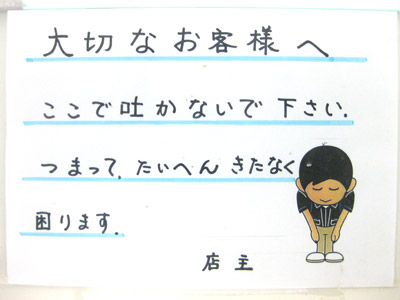 大切なお客様へ。
ここで吐かないで下さい.
つまって、たいへんきたなく
困ります.
店主